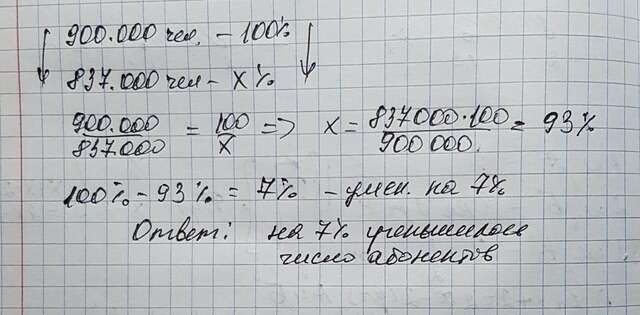 900.000 чел. – 100%
837.000 чел – х%
900.000 / 837000 = 100 / х => х = 837000·100 / 900000. = 93%
100% – 93% = 7% – умен. на 7%
Ответ: на 7% уменьшилось
число абонентов